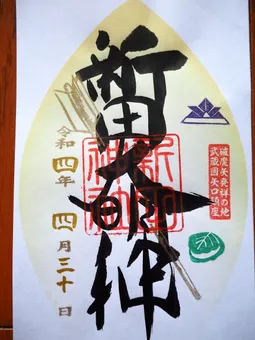 破魔矢発祥の地
武蔵國矢口鎮座
新田大明神
新田
神社
令和四年 四月三十日